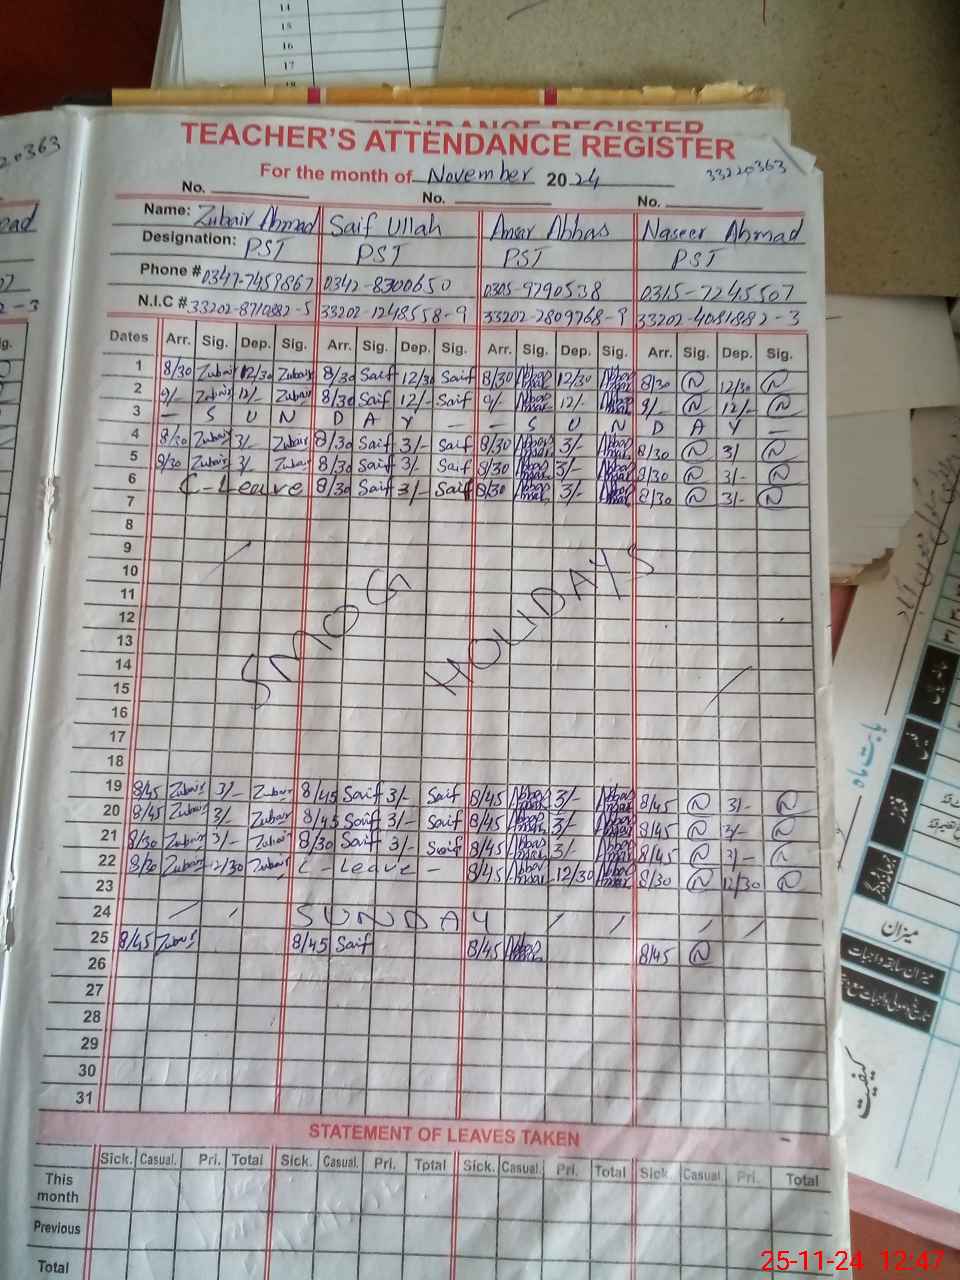 14
15
16
17
TEACHER'S ATTENDANCE REGISTER
For the month of November 2024 33220363
No. No. No.
Name: Zubair Ahmad Saif Ullah Ansar Abbas Naseer Ahmad
Designation: PST PST PST PST
Phone # 0347-7459867 0342-8300650 0305-9790538 0315-7245507
N.I.C # 33202-8710882-5 33202-1248558-9 33202-2809768-9 33202-4081882-3
Dates Arr. Sig. Dep. Sig. Arr. Sig. Dep. Sig. Arr. Sig. Dep. Sig. Arr. Sig. Dep. Sig.
1 8/30 Zubair 12/30 Zubair 8/30 Saif 12/30 Saif 8/30 Abbas Ansar 12/30 Abbas Ansar 8/30 N 12/30 N
2 9/- Zubair 12/- Zubair 8/30 Saif 12/- Saif 9/- Abbas Ansar 12/- Abbas Ansar 9/- N 12/- N
3 - S U N D A Y - - S U N D A Y -
4 8/30 Zubair 3/- Zubair 8/30 Saif 3/- Saif 8/30 Abbas Ansar 3/- Abbas Ansar 8/30 N 3/ N
5 8/30 Zubair 3/- Zubair 8/30 Saif 3/- Saif 8/30 Abbas Ansar 3/- Abbas Ansar 8/30 N 3/- N
6 C-Leave 8/30 Saif 3/- Saif 8/30 Abbas Ansar 3/- Abbas Ansar 8/30 N 3/- N
7
8
9
10
11
12
13
14
15
16
17
18
SMOG HOLIDAYS
19 8/45 Zubair 3/- Zubair 8/45 Saif 3/- Saif 8/45 Abbas Ansar 3/- Abbas Ansar 8/45 N 3/- N
20 8/45 Zubair 3/- Zubair 8/45 Saif 3/- Saif 8/45 Abbas Ansar 3/- Abbas Ansar 8/45 N 3/- N
21 8/30 Zubair 3/- Zubair 8/30 Saif 3/- Saif 8/45 Abbas Ansar 3/- Abbas Ansar 8/45 N 3/- N
22 8/30 Zubair 12/30 Zubair C - Leave - 8/45 Abbas Ansar 12/30 Abbas Ansar 8/30 N 12/30 N
23
24 SUNDAY
25 8/45 Zubair 8/45 Saif 8/45 Abbas Ansar 8/45 N
26
27
28
29
30
31
STATEMENT OF LEAVES TAKEN
Sick. Casual. Pri. Total Sick. Casual. Pri. Tptal Sick. Casual. Pri. Total Sick. Casual. Pri. Total
This month
Previous
Total
بابت ماہ
میزان
میزان سابقہ واجبات
کیفیت
25-11-24 12:47